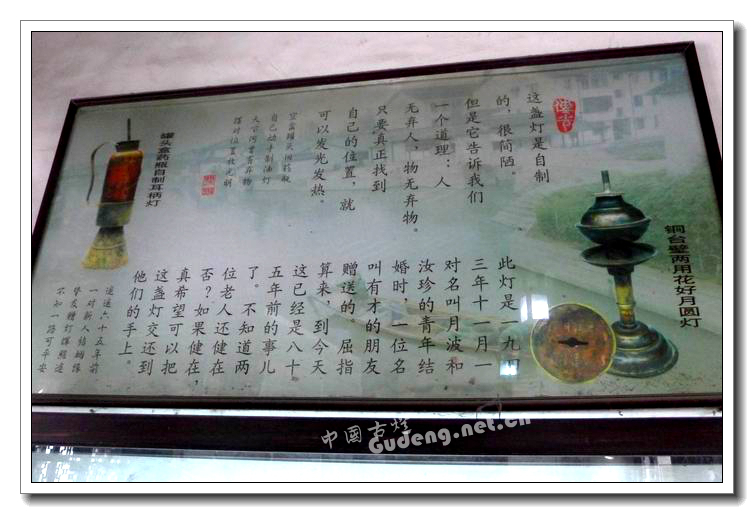 这盏灯是自制
的，很简陋。
但是它告诉我们
一个道理：人
无弃人，物无弃物。
只要真正找到
自己的位置，就
可以发光发热。
罐头旧药瓶
自己动手制油灯
天公何曾有弃物
摆对位置放光明
罐头盒药瓶自制耳柄灯
铜台壁两用花好月圆灯
此灯是一九四
三年十一月一
对名叫月波和
汝珍的青年结
婚时，一位名
叫有才的朋友
赠送的。屈指
算来，到今天
这已经是六十
五年前的事儿
了。不知道两
位老人还健在
否？如果健在，
真希望可以把
这盏灯交还到
他们的手上。
遥遥六十五年前
一对新人结姻缘
挚友赠灯辉照远
不知一路可平安
中國古灯
Gudeng.net.cn